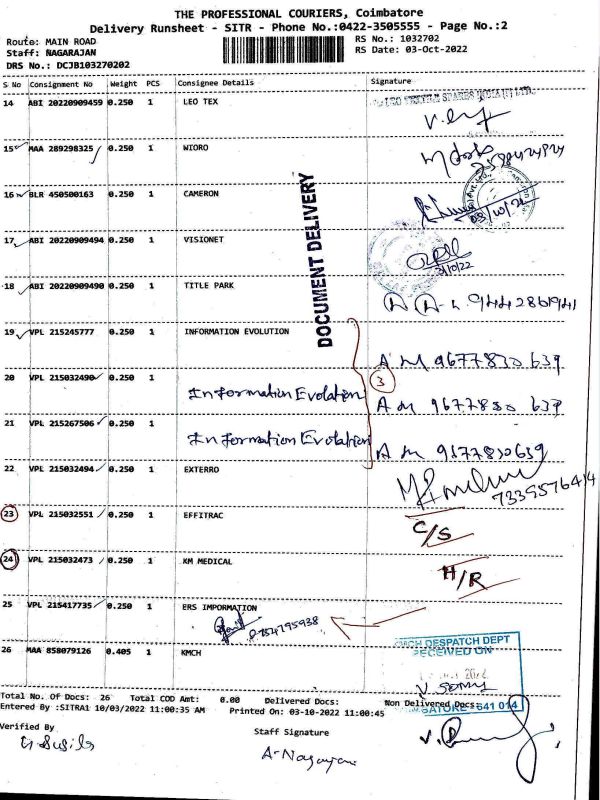 THE PROFESSIONAL COURIERS, Coimbatore
Delivery Runsheet - SITR - Phone No.:0422-3505555 - Page No.:2
Route: MAIN ROAD
RS No.: 1032702
Staff: NAGARAJAN
RS Date: 03-Oct-2022
DRS No.: DCJB103270202
S No Consignment No Weight PCS Consignee Details Signature
14 ABI 20220909459 0.250 1 LEO TEX
15 MAA 289298325 0.250 1 WIORO
16 BLR 450500163 0.250 1 CAMERON
17 ABI 20220909494 0.250 1 VISIONET
3/10/22
18 ABI 20220909490 0.250 1 TITLE PARK
DOCUMENT DELIVERY
19 VPL 215245777 0.250 1 INFORMATION EVOLUTION
A M 9677830639
3
20 VPL 215032490 0.250 1 Information Evolation
A M 9677830 639
21 VPL 215267506 0.250 1 Information Evolation
22 VPL 215032494 0.250 1 EXTERRO
7339576414
23 VPL 215032551 0.250 1 EFFITRAC
C/S
24 VPL 215032473 0.250 1 KM MEDICAL
H/R
25 VPL 215417735 0.250 1 ERS IMPORMATION
26 MAA 858079126 0.405 1 KMCH
KMCH DESPATCH DEPT
RECEIVED ON
Total No. Of Docs: 26 Total COD Amt: 0.00 Delivered Docs: Non Delivered Docs:
641 014
Entered By :SITRA1 10/03/2022 11:00:35 AM Printed On: 03-10-2022 11:00:45
Verified By
Staff Signature
A-Nagarajan